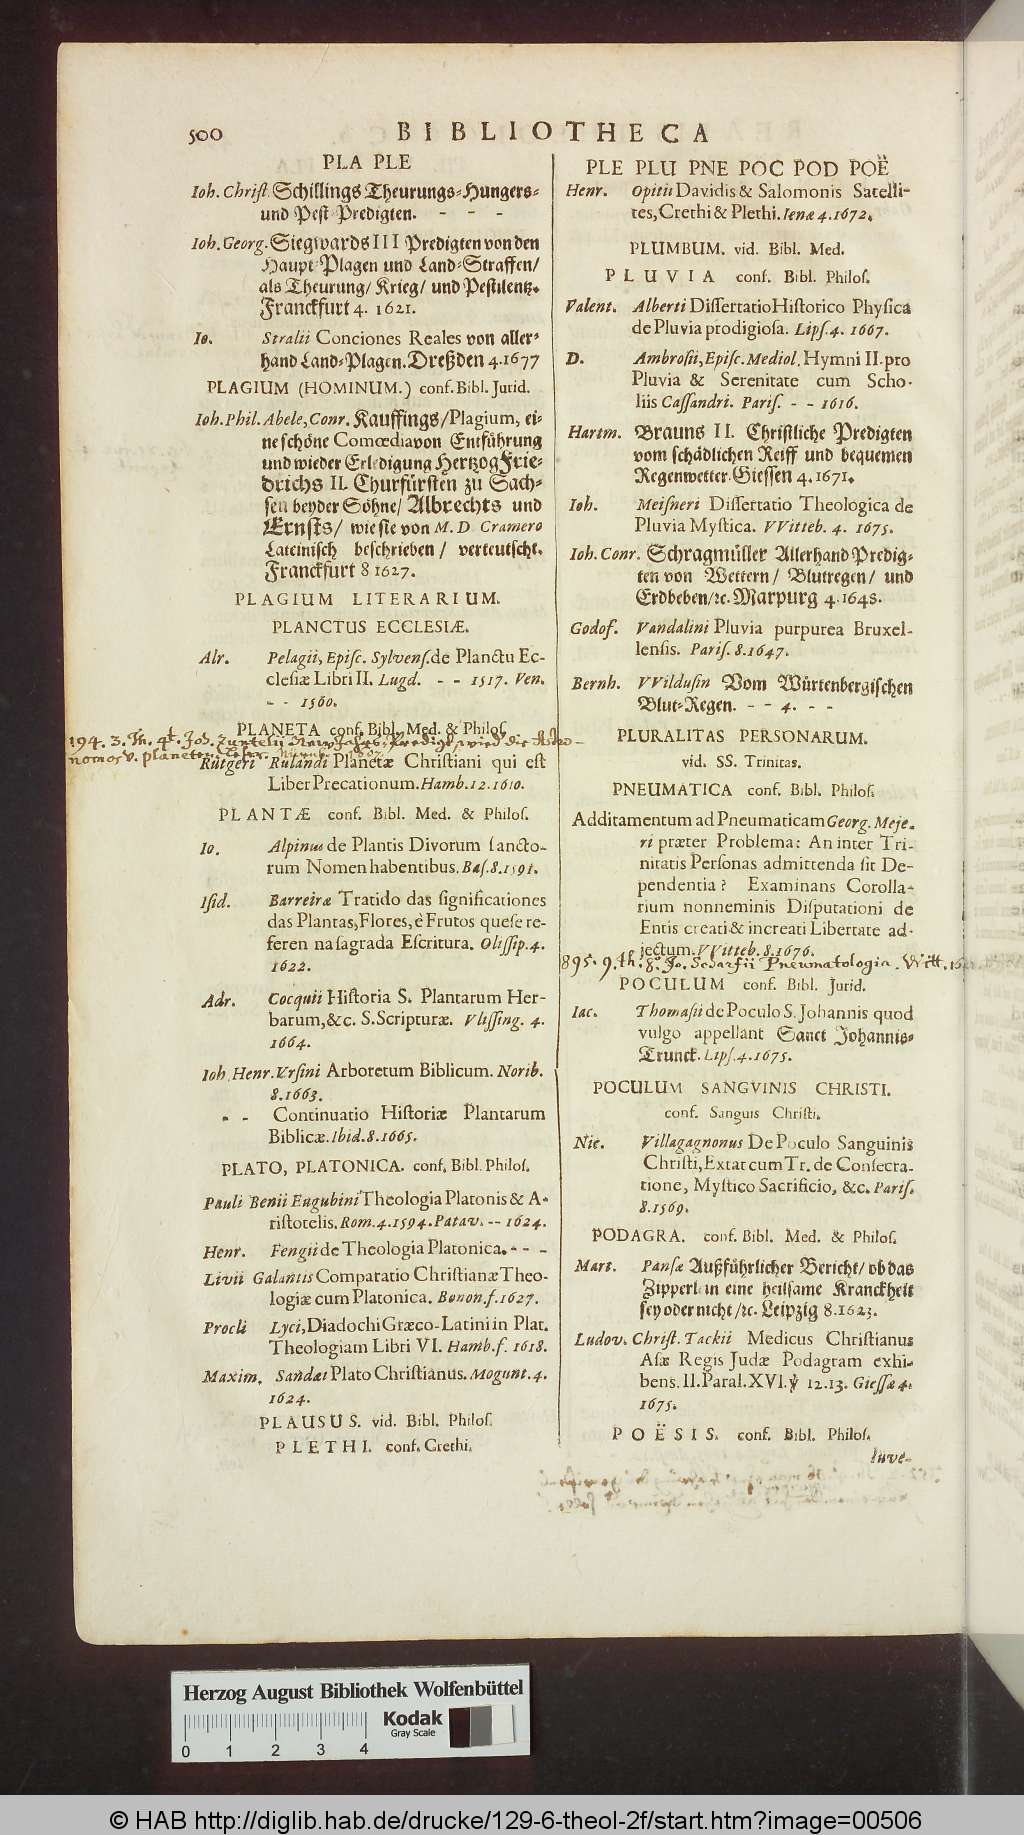 500
BIBLIOTHECA
PLA PLE
Ioh. Christ. Schillings Theurungs-Hungers-
und Pest-Predigten. - - -
Ioh. Georg. Siegwards III Predigten von den
Haupt-Plagen und Land-Straffen/
als Theurung/ Krieg/ und Pestilentz.
Franckfurt 4. 1621.
Io. Stralii Conciones Reales von aller-
hand Land-Plagen. Dreßden 4. 1677
PLAGIUM (HOMINUM.) conf. Bibl. Jurid.
Ioh. Phil. Abele, Conr. Kauffings/Plagium, ei-
ne schöne Comœdia von Entführung
und wieder Erledigung Hertzog Frie-
drichs II. Churfürsten zu Sach-
sen beyder Söhne/ Albrechts und
Ernsts/ wie sie von M. D Cramero
Lateinisch beschrieben / verteutscht.
Franckfurt 8 1627.
PLAGIUM LITERARIUM.
PLANCTUS ECCLESIÆ.
Alr. Pelagii, Episc. Sylvens. de Planctu Ec-
clesiæ Libri II. Lugd. - - 1517. Ven.
- - 1560.
PLANETA conf. Bibl. Med. & Philos.
194. 3. Th. 4t. Joh.
nomos v. planeten
Rutgeri Rulandi Planetæ Christiani qui est
Liber Precationum. Hamb. 12. 1610.
PLANTÆ conf. Bibl. Med. & Philos.
Io. Alpinus de Plantis Divorum sancto-
rum Nomen habentibus. Bas. 8. 1591.
Isid. Barreiræ Tratido das significationes
das Plantas, Flores, è Frutos que se re-
feren na sagrada Escritura. Olissip. 4.
1622.
Adr. Cocquii Historia S. Plantarum Her-
barum, &c. S. Scripturæ. Vlissing. 4.
1664.
Ioh. Henr. Ursini Arboretum Biblicum. Norib.
8. 1663.
- - Continuatio Historiæ Plantarum
Biblicæ. Ibid. 8. 1665.
PLATO, PLATONICA. conf. Bibl. Philos.
Pauli Benii Eugubini Theologia Platonis & A-
ristotelis. Rom. 4. 1594. Patav. - - 1624.
Henr. Fengii de Theologia Platonica. - - -
Livii Galantis Comparatio Christianæ Theo-
logiæ cum Platonica. Bonon. f. 1627.
Procli Lyci, Diadochi Græco-Latini in Plat.
Theologiam Libri VI. Hamb. f. 1618.
Maxim. Sandæi Plato Christianus. Mogunt. 4.
1624.
PLAUSUS. vid. Bibl. Philos.
PLETHI. conf. Crethi.
PLE PLU PNE POC POD POË
Henr. Opitii Davidis & Salomonis Satelli-
tes, Crethi & Plethi. Ienæ 4. 1672.
PLUMBUM. vid. Bibl. Med.
PLUVIA conf. Bibl. Philos.
Valent. Alberti Dissertatio Historico Physica
de Pluvia prodigiosa. Lips. 4. 1667.
D. Ambrosii, Episc. Mediol. Hymni II. pro
Pluvia & Serenitate cum Scho-
liis Cassandri. Paris. - - 1616.
Hartm. Brauns II. Christliche Predigten
vom schädlichen Reiff und bequemen
Regenwetter. Giessen 4. 1671.
Ioh. Meisneri Dissertatio Theologica de
Pluvia Mystica. VVitteb. 4. 1675.
Ioh. Conr. Schragmüller Allerhand Predig-
ten von Wettern/ Blutregen/ und
Erdbeben/ ꝛc. Marpurg 4. 1648.
Godof. Vandalini Pluvia purpurea Bruxel-
lensis. Paris. 8. 1647.
Bernh. VVildusin Vom Würtenbergischen
Blut-Regen. - - 4. - -
PLURALITAS PERSONARUM.
vid. SS. Trinitas.
PNEUMATICA conf. Bibl. Philos.
Additamentum ad Pneumaticam Georg. Meje-
ri præter Problema: An inter Tri-
nitatis Personas admittenda sit De-
pendentia? Examinans Corolla-
rium nonneminis Disputationi de
Entis creati & increati Libertate ad-
jectum. VVitteb. 8. 1676.
895. 9. th. 8. Jo. Scharfii Pneumatologia. Witt.
POCULUM conf. Bibl. Jurid.
Iac. Thomasii de Poculo S. Johannis quod
vulgo appellant Sanct Johannis-
Trunck. Lips. 4. 1675.
POCULUM SANGVINIS CHRISTI.
conf. Sanguis Christi.
Nic. Villagagnonus De Poculo Sanguinis
Christi, Extat cum Tr. de Consecra-
tione, Mystico Sacrificio, &c. Paris.
8. 1569.
PODAGRA. conf. Bibl. Med. & Philos.
Mart. Pansæ Außführlicher Bericht/ ob das
Zipperlein eine heilsame Kranckheit
sey oder nicht/ ꝛc. Leipzig 8. 1623.
Ludov. Christ. Tackii Medicus Christianus
Asæ Regis Judæ Podagram exhi-
bens. II. Paral. XVI. ℣ 12. 13. Giessæ 4.
1675.
POËSIS. conf. Bibl. Philos.
Iuve-
Herzog August Bibliothek Wolfenbüttel
Kodak
Gray Scale
0 1 2 3 4
© HAB http://diglib.hab.de/drucke/129-6-theol-2f/start.htm?image=00506